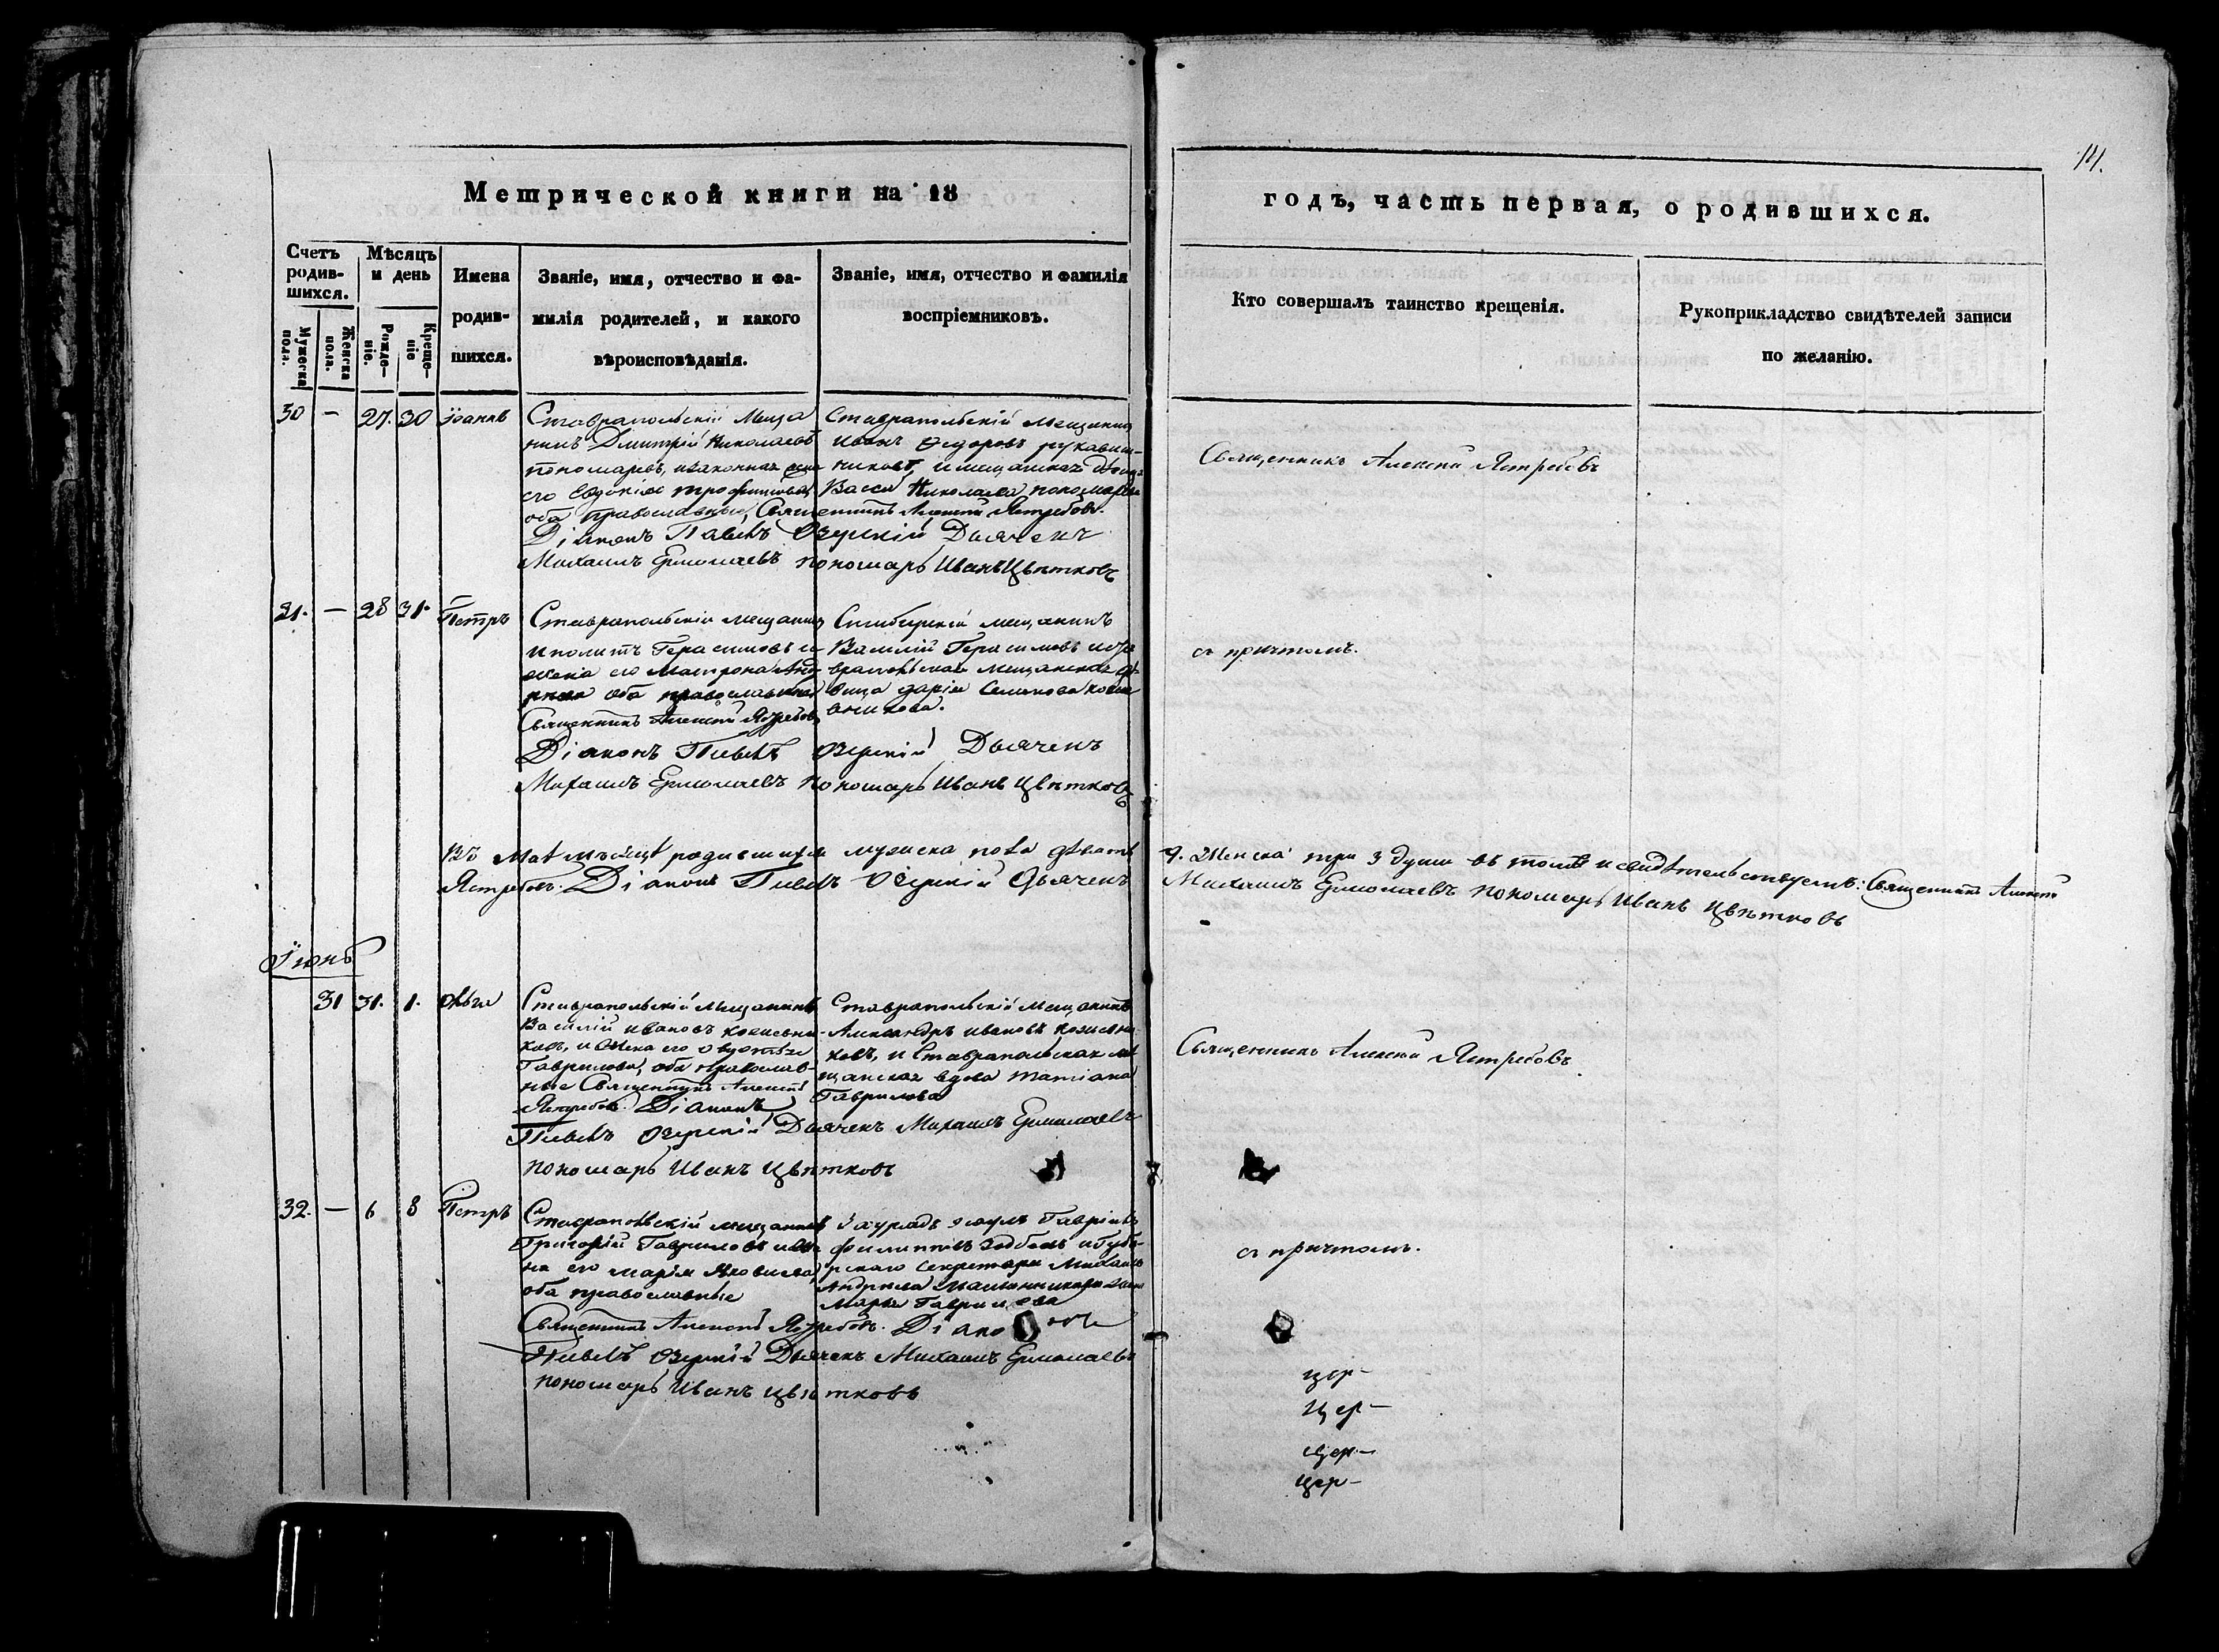 14.
Метрической книги на 18
годъ, часть первая, о родившихся.
Счетъ родив-шихся.
Мужеска пола.
Женска пола.
Мѣсяцъ и день
Рожде-ніе.
Креще-ніе
Имена родив-шихся.
Званіе, имя, отчество и фа-
милія родителей, и какого
вѣроисповѣданія.
Званіе, имя, отчество и фамилія
воспріемниковъ.
Кто совершалъ таинство крещенія.
Рукоприкладство свидѣтелей записи
по желанію.
30 — 27. 30 Іоаннъ
Ставропольскій Меща
нинъ Дмитрій Николаевъ
пономаревъ, и законная жена
его Евдокія трофимова,
оба православные, Священникъ Алексій Ястребовъ.
Діаконъ Павелъ Озерскій Дьячекъ
Михаилъ Ермолаевъ пономарь Иванъ Цвѣтковъ
Ставропольскій Мещанинъ
Иванъ Федоровъ рукавиш-
никовъ, и мещанская
Васса Николаева пономарева
Священникъ Алексій Ястребовъ
31. — 28 31. Петръ
Ставропольскій мещанинъ
Иполитъ Герасимовъ и
жена его Матрона
оба православные
Священникъ Алексій Ястребовъ
Діаконъ Павелъ Озерскій Дьячекъ
Михаилъ Ермолаевъ пономарь Иванъ Цвѣтковъ
Симбирскій мещанинъ
Василій Герасимовъ и Ста
вропольская Мещанская дѣ-
вица дарія Семенова
с причтомъ.
Въ Маѣ мѣсяцѣ родившихся мужеска пола девять 9. Женска три 3 души въ томъ и свидѣтельствуемъ: Священникъ Алексій
Ястребовъ. Діаконъ Павелъ Озерскій Дьячекъ Михаилъ Ермолаевъ пономарь Иванъ Цвѣтковъ
Іюнь
31 31. 1. Ольга
Ставропольскій Мещанинъ
Василій Ивановъ кожевни-
ковъ, и Жена его
Гаврилова, оба православ-
ные Священникъ Алексій
Ястребовъ. Діаконъ
Павелъ Озерскій Дьячекъ Михаилъ Ермолаевъ
пономарь Иванъ Цвѣтковъ
Ставропольскій Мещанинъ
Александръ Ивановъ кожевни
ковъ, и Ставропольская ме
щанская вдова Татіана
Гаврилова
Священникъ Алексій Ястребовъ.
32. — 6 8 Петръ
Ставропольскій мещанинъ
Григорій Гавриловъ и же
на его марія Яковлева,
оба православные
Священникъ Алексій Ястребовъ. Діаконъ
Павелъ Озерскій Дьячекъ Михаилъ Ермолаевъ
пономарь Иванъ Цвѣтковъ
Зауряд есаулъ Гавріилъ
филипповъ и губе-
рнскаго секретаря Михаила
Андреева жена
Марья Гаврилова
с причтомъ.
цер-
Цер-
цер-
цер-